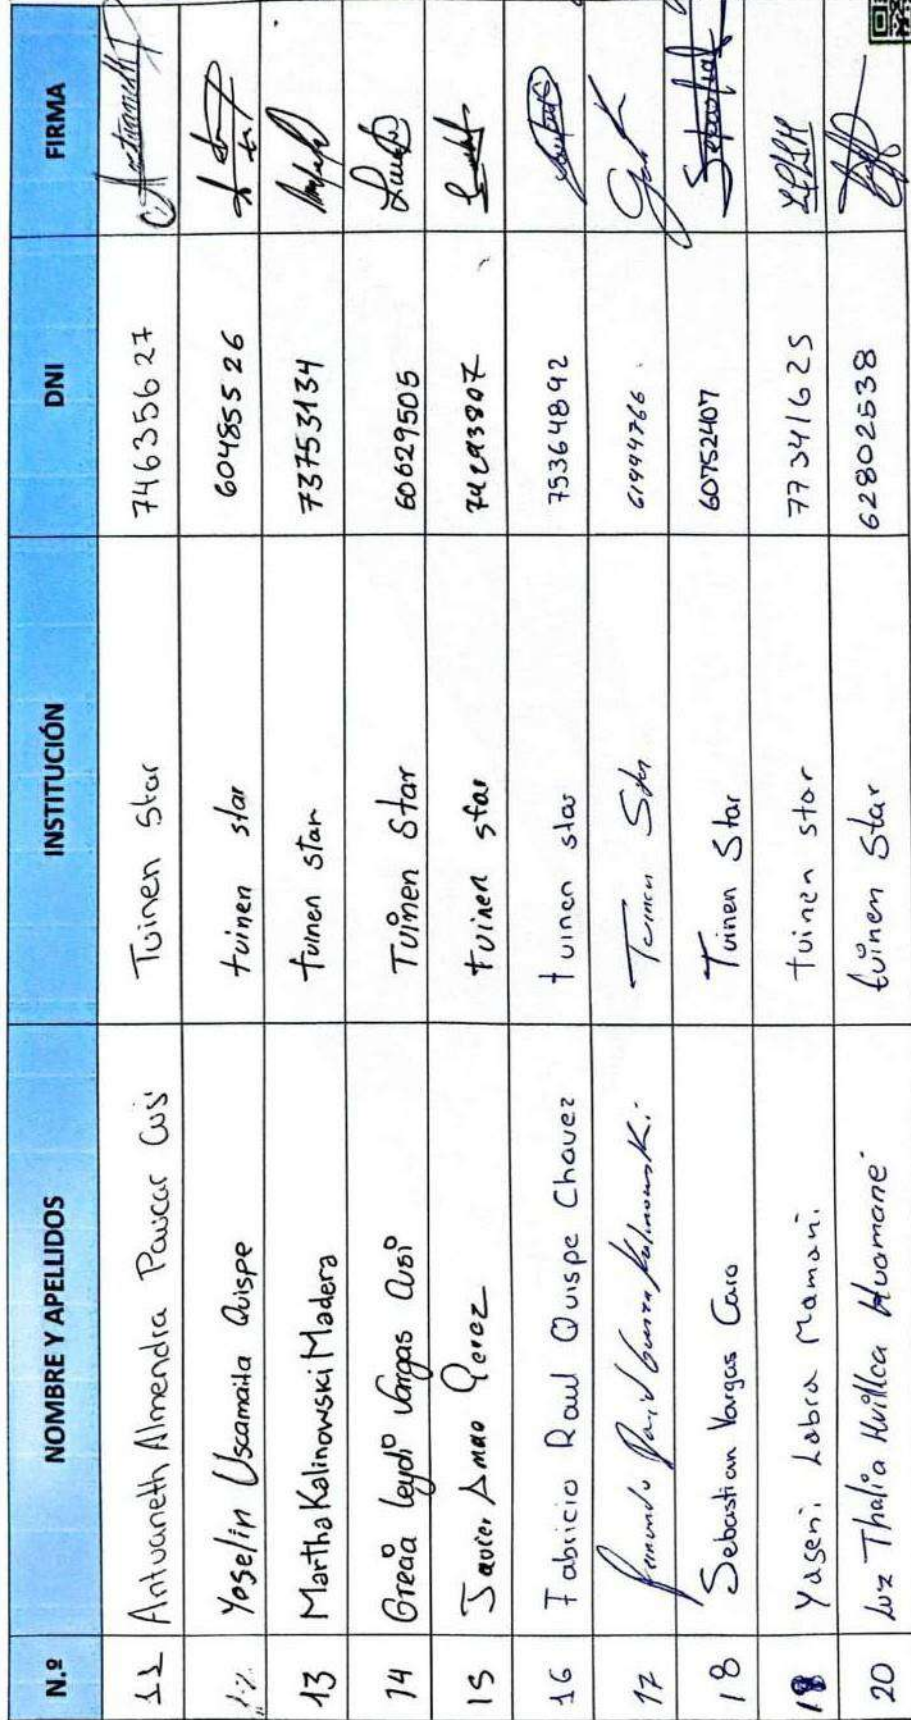 N.º NOMBRE Y APELLIDOS INSTITUCIÓN DNI FIRMA
11 Antuaneth Almendra Paucar Cusi Tuinen Star 74635627
12 Yoselin Uscamaita Quispe tuinen star 60485526
13 Martha Kalinowski Madera tuinen star 73753134
14 Grecia leydi Vargas Cusi Tuinen Star 60629505
15 Javier Amao Perez tuinen star 74293807
16 Fabricio Raul Quispe Chavez tuinen star 75364892
17 Kalinowski Tuinen Star 61994766
18 Sebastian Vargas Caro Tuinen Star 60752407
Yaseni Labra Mamani. tuinen star 77341625
20 Luz Thalia Huillca Huamane tuinen Star 62802538